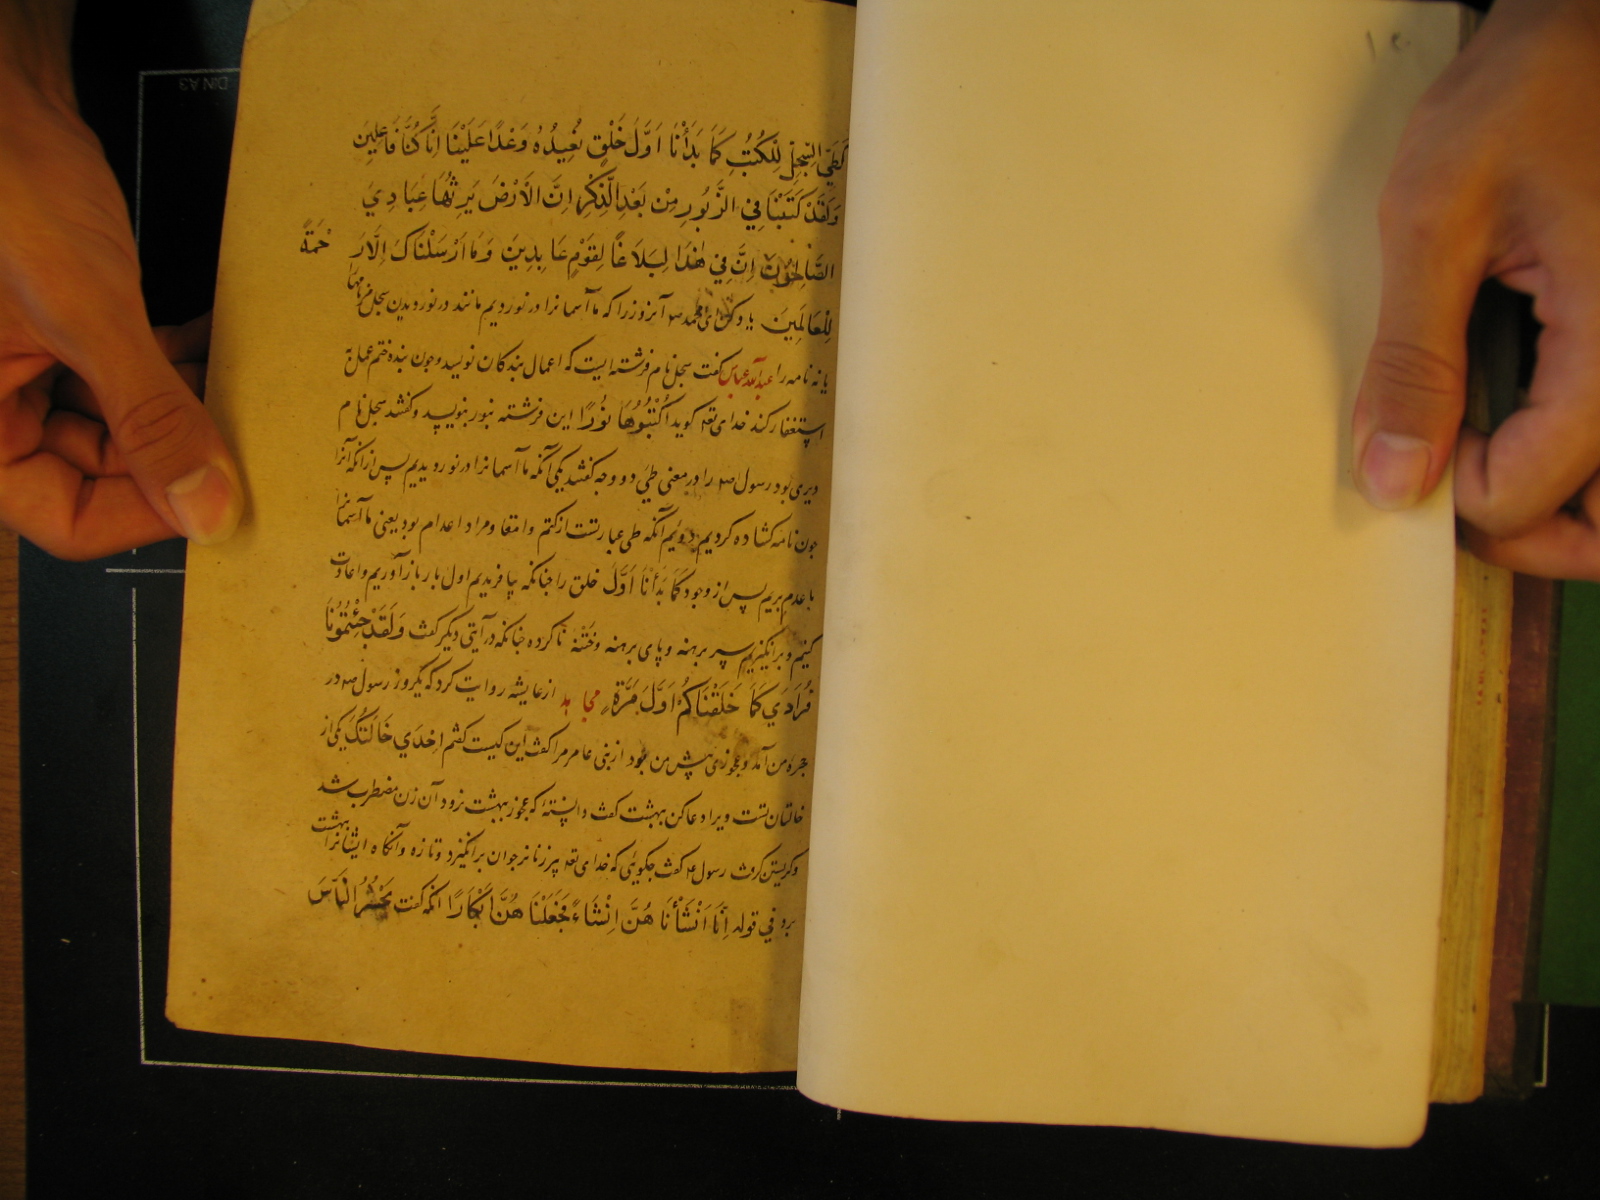 كَطَيِّ السِّجِلِّ لِلْكُتُبِ كَمَا بَدَأْنَا اَوَّلَ خَلْقٍ نُعِيدُهُ وَعْدًا عَلَيْنَا اِنَّا كُنَّا فَاعِلِينَ
وَلَقَدْ كَتَبْنَا فِي الزَّبُورِ مِنْ بَعْدِ الذِّكْرِ اِنَّ الْاَرْضَ يَرِثُهَا عِبَادِيَ
الصَّالِحُونَ اِنَّ فِي هٰذَا لَبَلَاغًا لِقَوْمٍ عَابِدِينَ وَمَا اَرْسَلْنَاكَ اِلَّا رَحْمَةً
لِلْعَالَمِينَ ياد كن ای محمد آنروز را كه ما آسمانرا در نورديم مانند در نورديدن سجل مر نامها
يا نه نامه را عبدالله عباس كفت سجل نام فرشته ايست كه اعمال بندكان نويسد وجون بنده ختم عمل به
استغفار كند خدای تعه كويد اُكْتُبُوهَا نُورًا اين فرشته بنور بنويسد وكفتند سجل نام
دبيری بود رسول را در معنی طي دو وجه كفتند يكی آنكه ما آسمانرا در نورديديم پس ازانكه آنرا
جون نامه كشاده كرديم دويم آنكه طی عبارتست از كتم وامتعا ومراد اعدام بود يعنی ما آسمانرا
با عدم بريم پس از وجود كَمَا بَدَأْنَا اَوَّلَ خلق را جنانكه بيافريديم اول بار باز آوريم واعادت
كنيم وبرانكيزيم سر برهنه وپای برهنه وختنه ناكرده جنانكه در آيتی ديكر كفت وَلَقَدْ جِئْتُمُونَا
فُرَادَي كَمَا خَلَقْنَاكُمْ اَوَّلَ مَرَّةٍ مجاهد از عايشه روايت كرد كه يكروز رسول در
حجره من آمد وعجوزی پيش من بود از بنی عامر مرا كفت اين كيست كفتم اِحْدَي خَالَتُكَ يكی از
خالتان تست ويرا دعا كن ببهشت كفت دانسته كه عجوز ببهشت نرود آن زن مضطرب شد
وكريستن كرفت رسول كفت جكوئی كه خدای تعه پير زنانرا جوان برانكيزد وتازه وآنكاه ايشانرا ببهشت
برد في قوله اِنَّا اَنْشَأْنَا هُنَّ اِنْشَاءً فَجَعَلْنَا هُنَّ اَبْكَارًا آنكه كفت يُحْشَرُ النَّاسَ